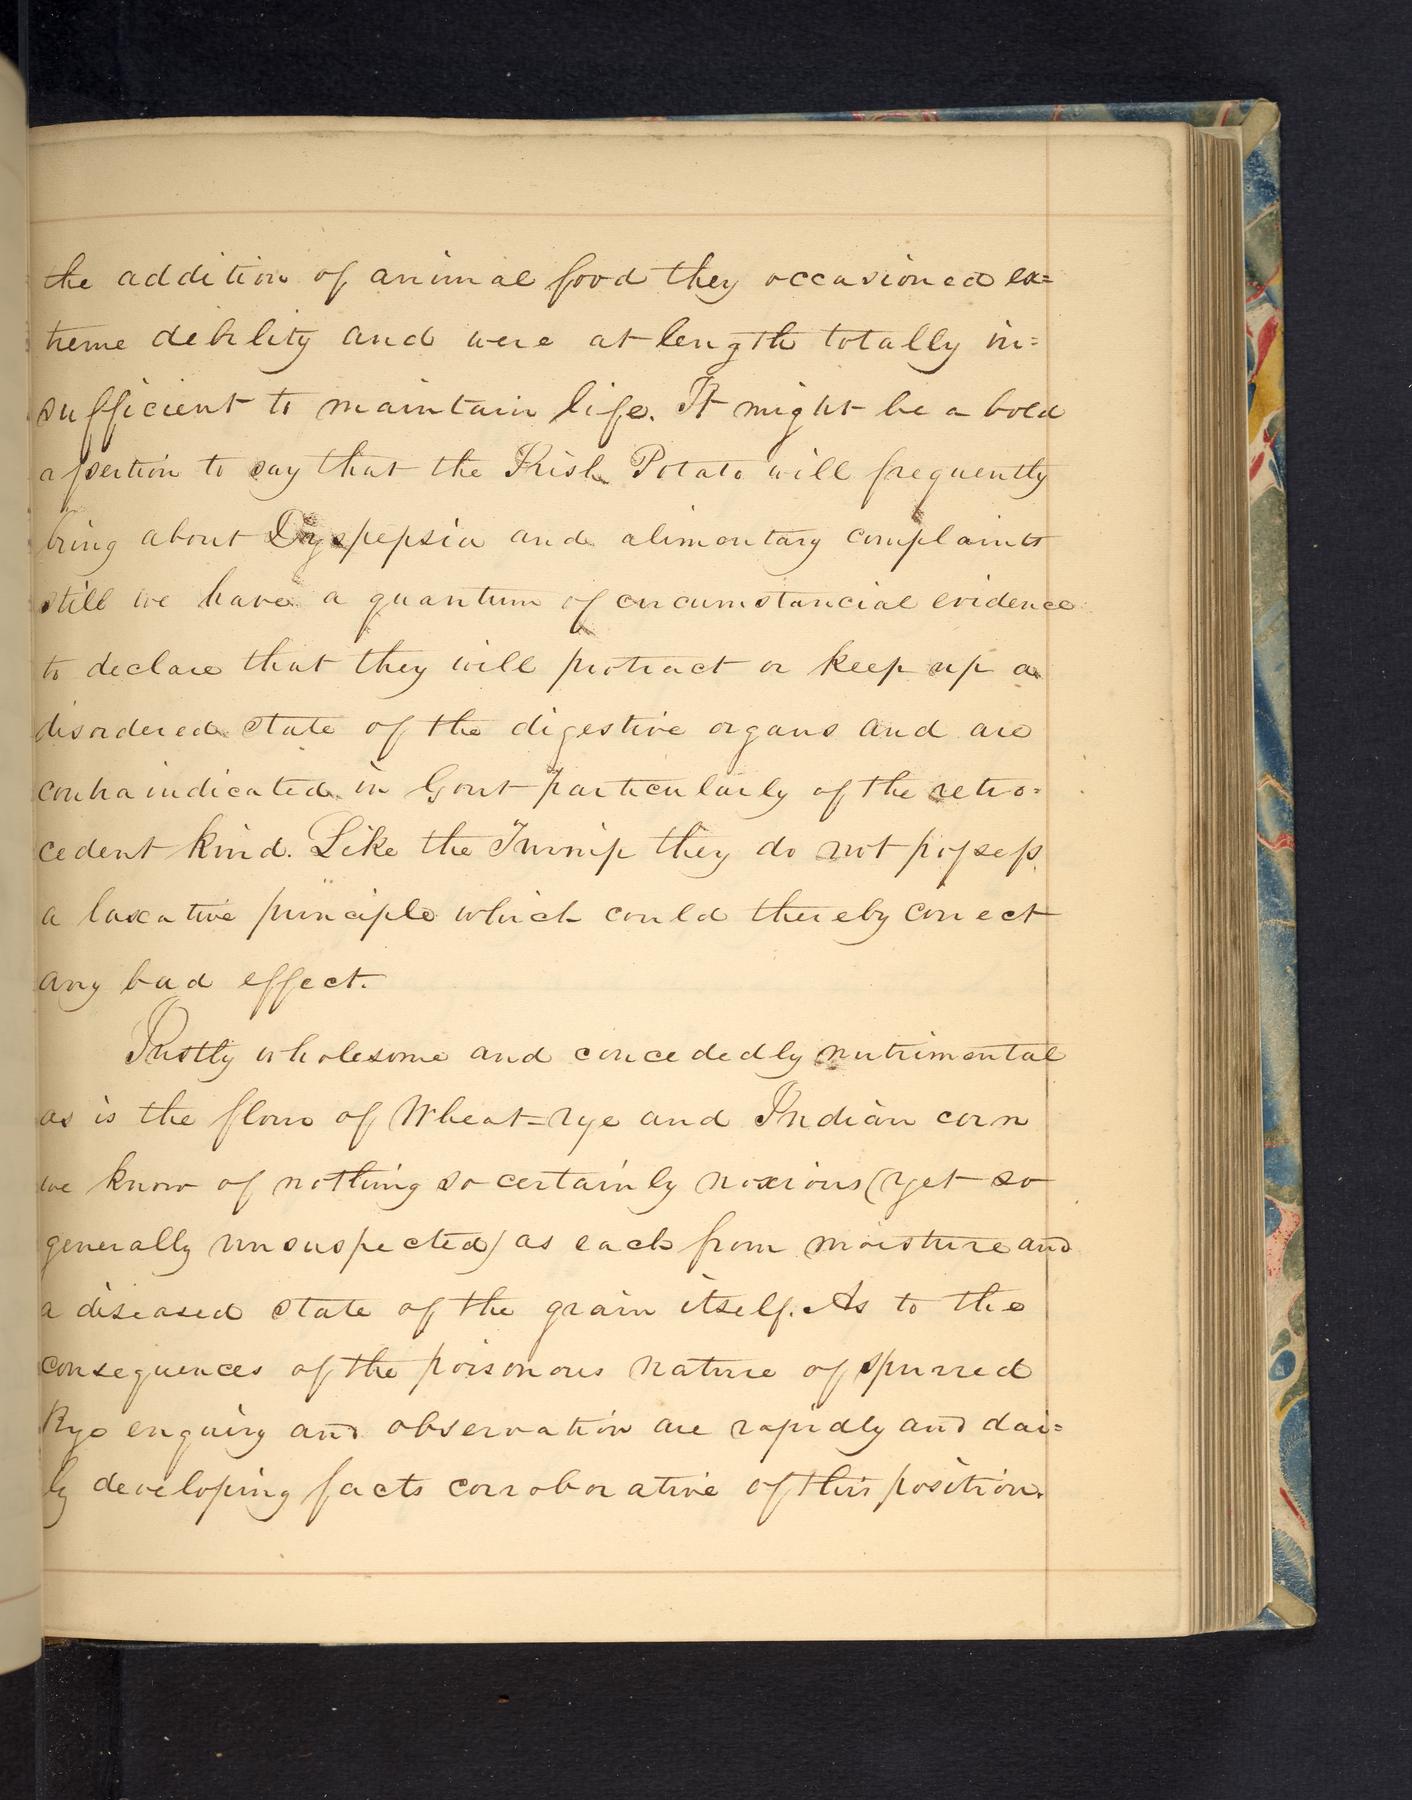 the addition of animal food they occasioned ex=
treme debility and were at length totally in=
sufficient to maintain life. It might be a bold
assertion to say that the Irish Potato will frequently
bring about Dyspepsia and alimentary complaints
still we have a quantum of circumstancial evidence
to declare that they will protract or keep up a
disordered state of the digestive organs and are
contraindicated in Gout particularly of the retro=
cedent kind. Like the Turnip they do not possess
a laxative principle which could thereby correct
any bad effect.
Justly wholesome and concededly nutrimental
as is the flour of Wheat=rye and Indian corn
we know of nothing so certainly noxious (yet so
generally unsuspected) as each from moisture and
a diseased state of the grain itself. As to the
consequences of the poisonous nature of spurred
Rye enquiry and observation are rapidly and dai=
ly developing facts corroborative of this position.